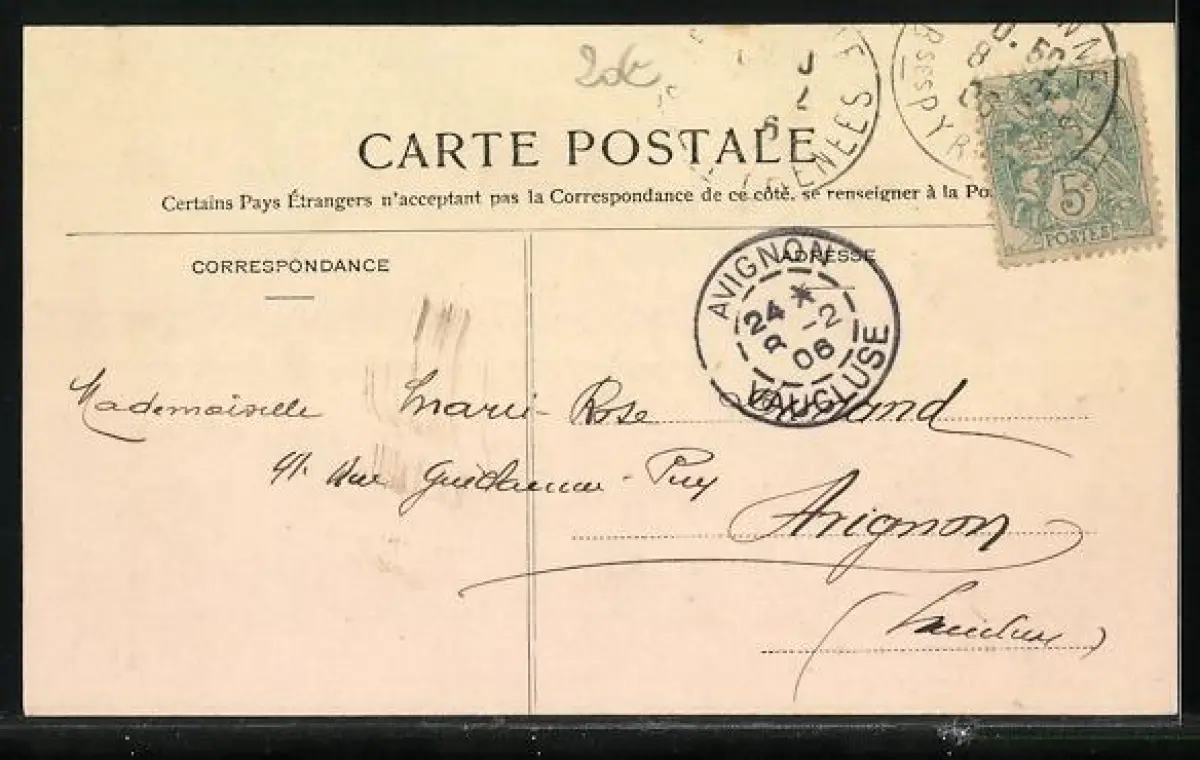 20€
CARTE POSTALE
Certains Pays Étrangers n'acceptant pas la Correspondance de ce côté, se renseigner à la Po
5c
POSTES
CORRESPONDANCE
ADRESSE
AVIGNON
24 *
8 -2
06
VAUCLUSE
Mademoiselle Marie-Rose
41. Rue Guillaume-Puy
Avignon
(Vaucluse)